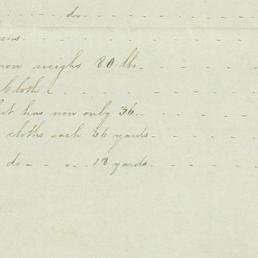 do
now weighs 80 lb.
Cloth
it has now only 36.
cloths each 36 yards.
do 18 yards